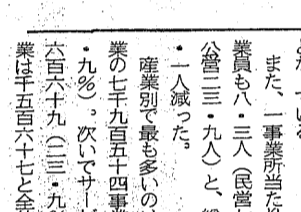 また、一事業所当た
業員も八・三人（民営
公営二三・九人）と、
・一人減った。
産業別で最も多いのは
業の七千九百五十四事業
・九％）。次いでサー
六百六十九（二三・九
業は千五百六十七と全